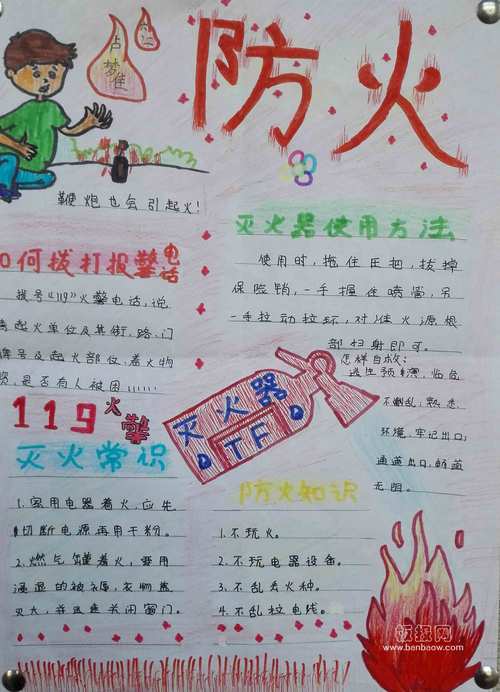 防火
占梦佳
鞭炮也会引起火!
如何拨打报警电话
拨号"119"火警电话,说
清起火单位及其街、路、门
牌号及起火部位,着火物
质,是否有人被困……
119火警
灭火常识
1.家用电器着火,应先
切断电源再用干粉。
2.燃气罐着火,要用
浸湿的被褥,衣物盖
灭火,并迅速关闭阀门。
灭火器使用方法
使用时,拖住压把,拔掉
保险销,一手握住喷管,另
一手拉动拉环,对准火源根
部扫射即可。
怎样自救:
逃生预演,临危
不乱;熟悉
环境,牢记出口;
通道出口,畅通
无阻。
灭火器
DTFD
防火知识
1.不玩火。
2.不玩电器设备。
3.不乱丢火种。
4.不乱拉电线。
饭报网
www.banbaow.com